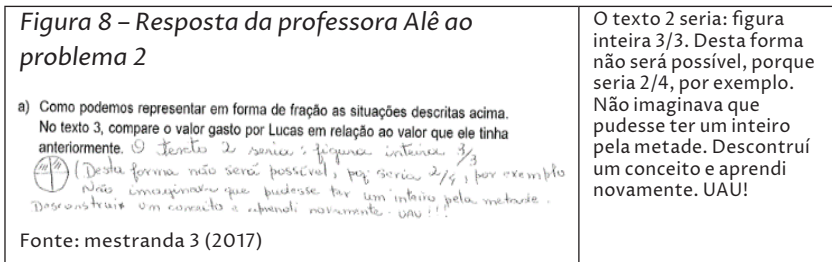 Figura 8 – Resposta da professora Alê ao
problema 2
a) Como podemos representar em forma de fração as situações descritas acima.
No texto 3, compare o valor gasto por Lucas em relação ao valor que ele tinha
anteriormente. O texto 2 seria: figura inteira 3/3
(Desta forma não será possível, pq seria 2/4, por exemplo
Não imaginava que pudesse ter um inteiro pela metade.
Desconstruir um conceito e aprendi novamente. UAU!!!
Fonte: mestranda 3 (2017)
O texto 2 seria: figura
inteira 3/3. Desta forma
não será possível, porque
seria 2/4, por exemplo.
Não imaginava que
pudesse ter um inteiro
pela metade. Descontruí
um conceito e aprendi
novamente. UAU!